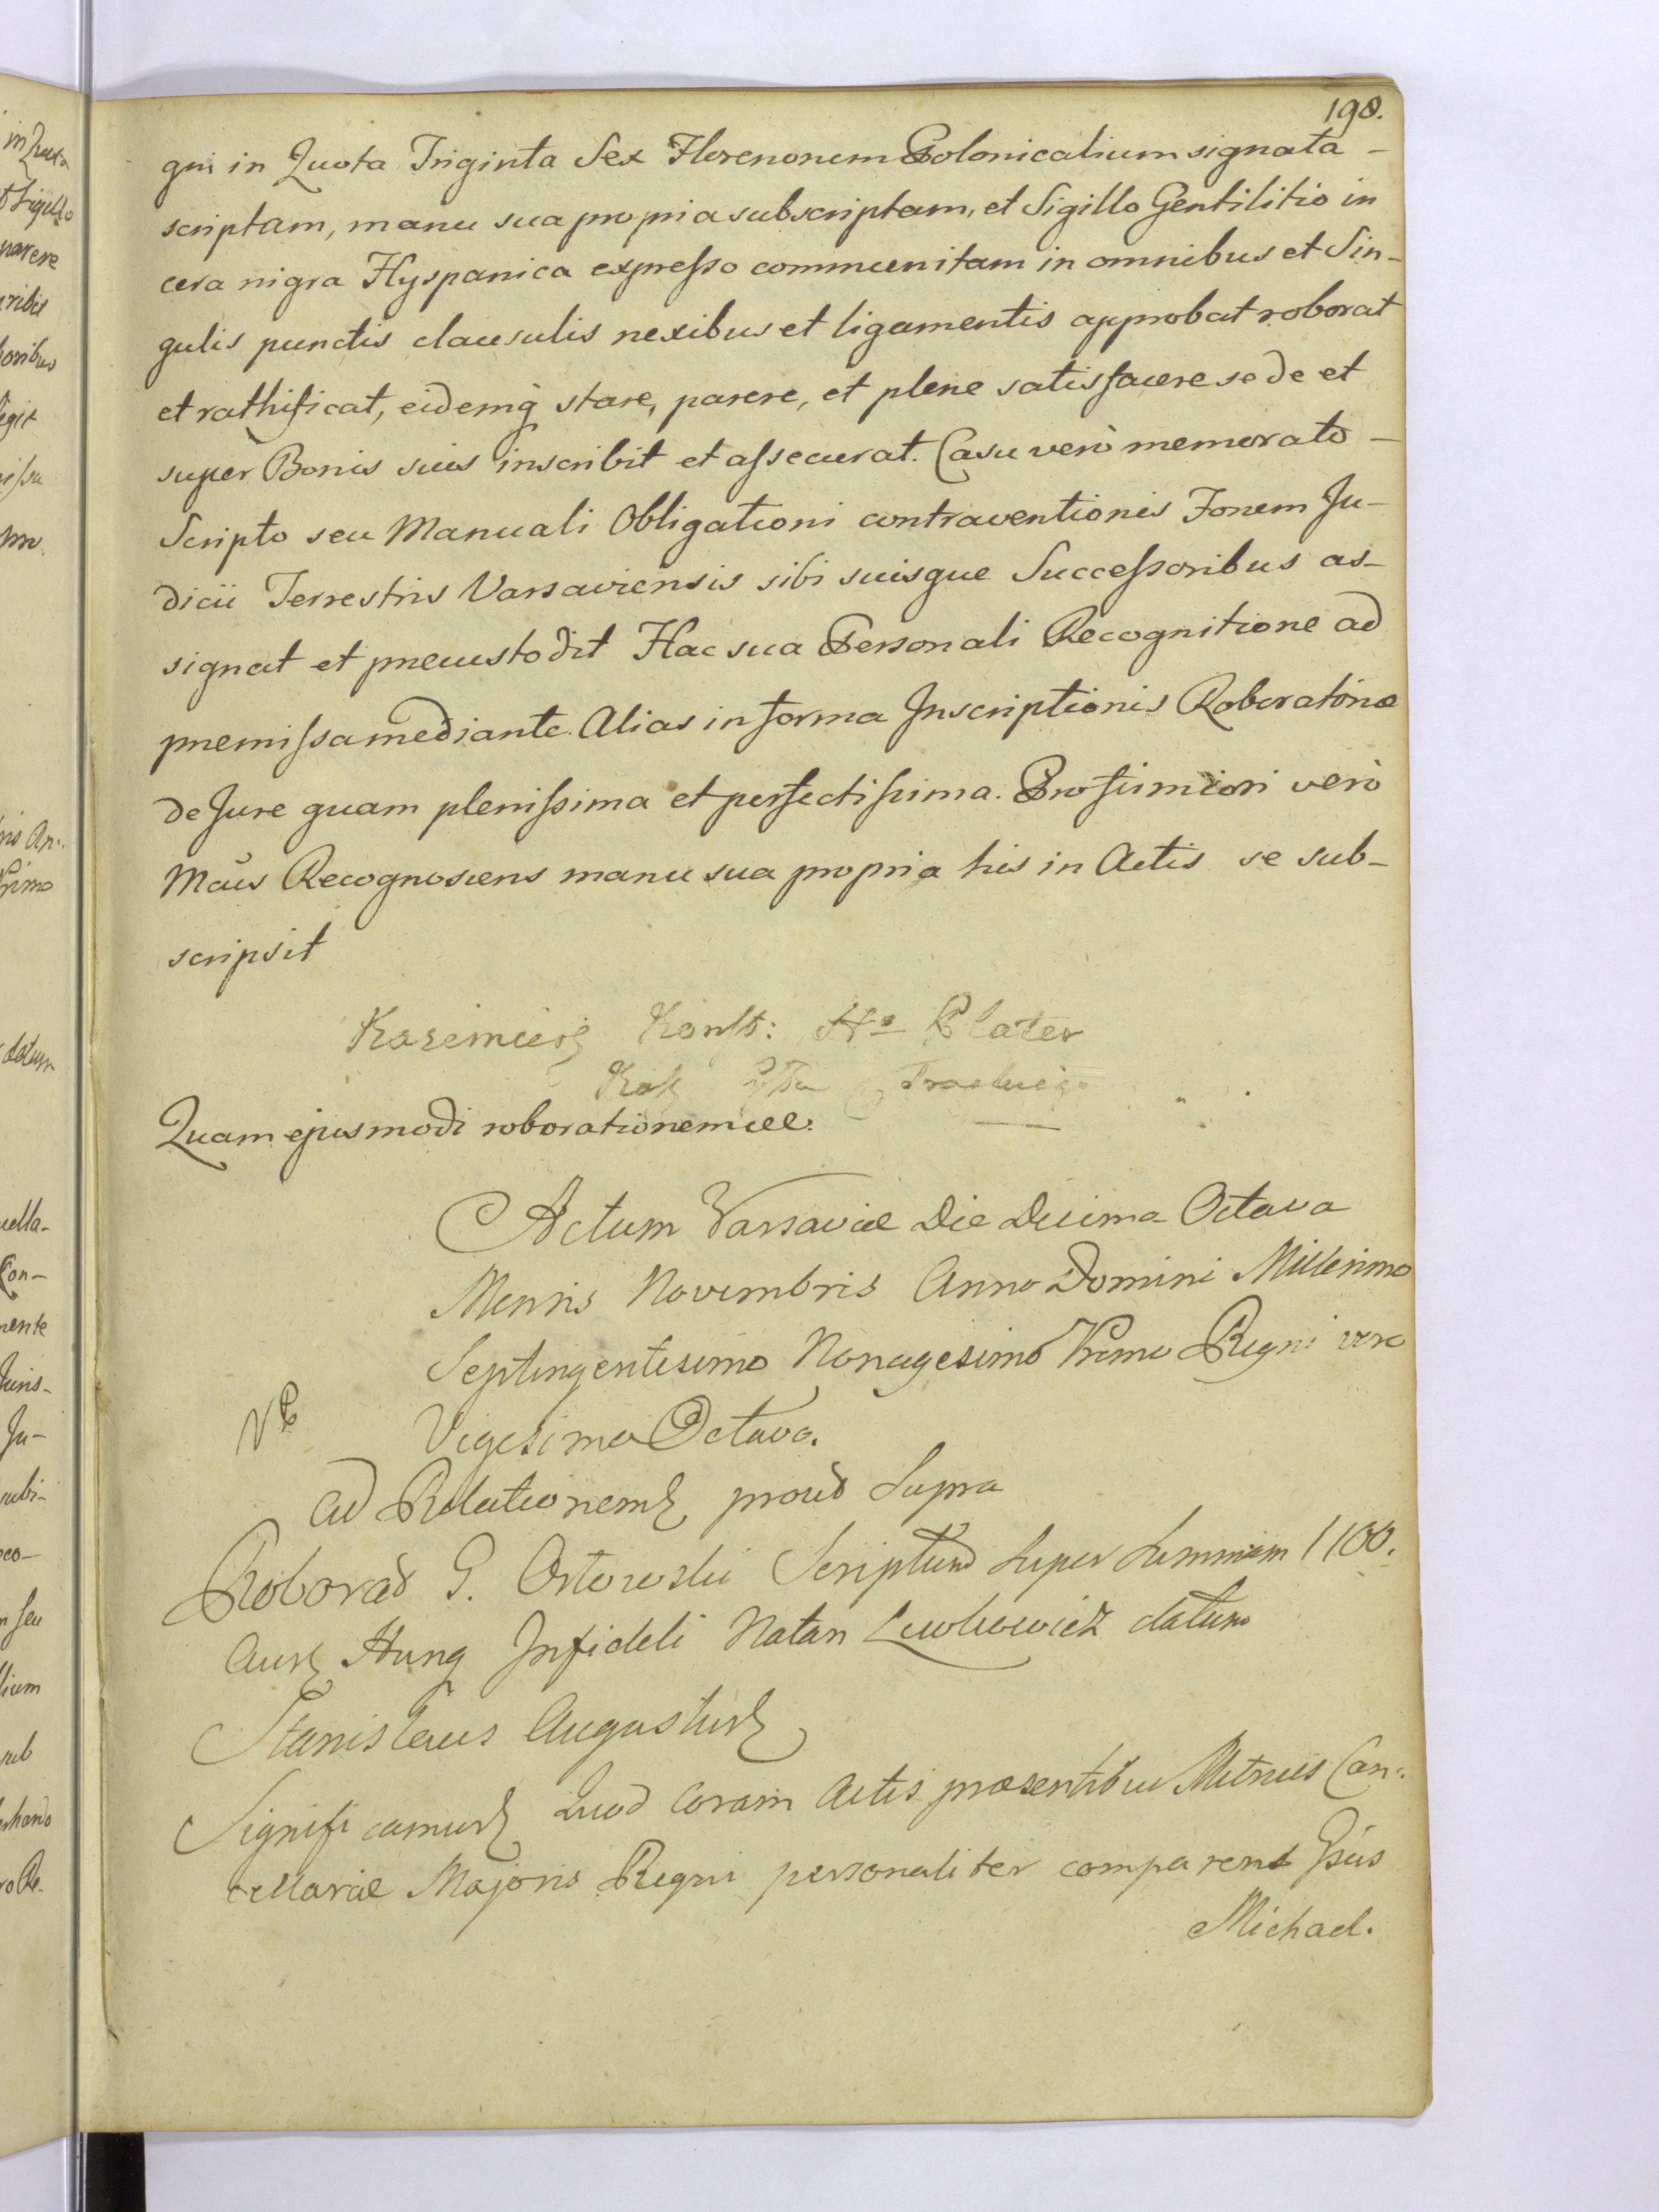 198.
gni in Quota Triginta Sex Florenorum Polonicalium signata -
scriptam, manu sua propria subscriptam, et Sigillo Gentilitio in
cera nigra Hyspanica expresso communitam in omnibus et Sin-
gulis punctis clausulis nexibus et ligamentis approbat roborat
et rathificat, eidemq̀ stare, parere, et plene satisfacere se de et
super Bonis suis inscribit et assecurat. Casu verò memorato -
Scripto seu Manuali Obligationi contraventionis Forum Ju-
dicii Terrestris Varsaviensis sibi suisque Successoribus as-
signat et precustodit Hac sua Personali Recognitione ad
premissa mediante. Alias in forma Inscriptionis Roboratoriæ
de Jure quam plenissima et perfectissima. Pro firmiori verò
Mcus Recognoscens manu sua propria his in Actis se sub-
scripsit
Kazimierz Konst: Hr Plater
Quam ejusmodi roborationem
Actum Varsaviæ Die Decima Octava
Mensis Novembris Anno Domini Millesimo
Septingentesimo Nonagesimo Primo Regni vero
Vigesimo Octavo.
Ad Relationem prout Supra
Roborat G. Ostowski Scriptum Super Summam 1100.
Aur Hung Infideli Natan Lewkowicz datum
Stanislaus Augustus
Significamus Quod Coram Actis præsentibus Metrices Can-
cellariæ Majoris Regni personaliter comparens Gsus
Michael.